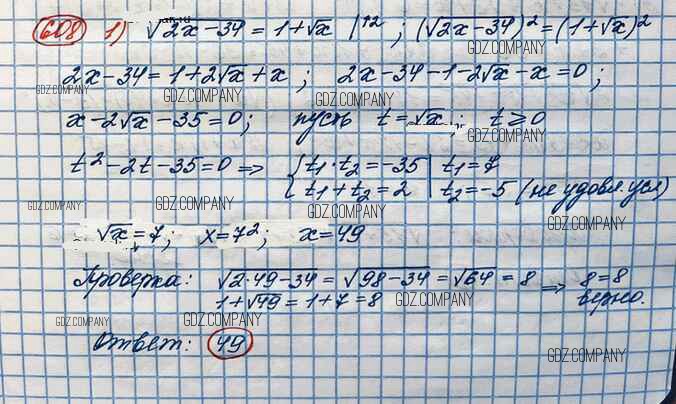 608 1) √2x-34 = 1+√x |^2 ; (√2x-34)^2=(1+√x)^2
GDZ.COMPANY
2x-34=1+2√x+x ; 2x-34-1-2√x-x=0 ;
GDZ.COMPANY GDZ.COMPANY GDZ.COMPANY
x-2√x-35=0; пусть t=√x ; t≥0
GDZ.COMPANY
t²-2t-35=0 => {t₁·t₂=-35 | t₁=7
t₁+t₂=2 | t₂=-5 (не удовл. усл)
GDZ.COMPANY GDZ.COMPANY GDZ.COMPANY GDZ.COMPANY
√x=7; x=7²; x=49
Проверка: √2·49-34 = √98-34 = √64 = 8 => 8=8
1+√49 = 1+7 = 8 верно.
GDZ.COMPANY
GDZ.COMPANY GDZ.COMPANY
Ответ: 49
GDZ.COMPANY